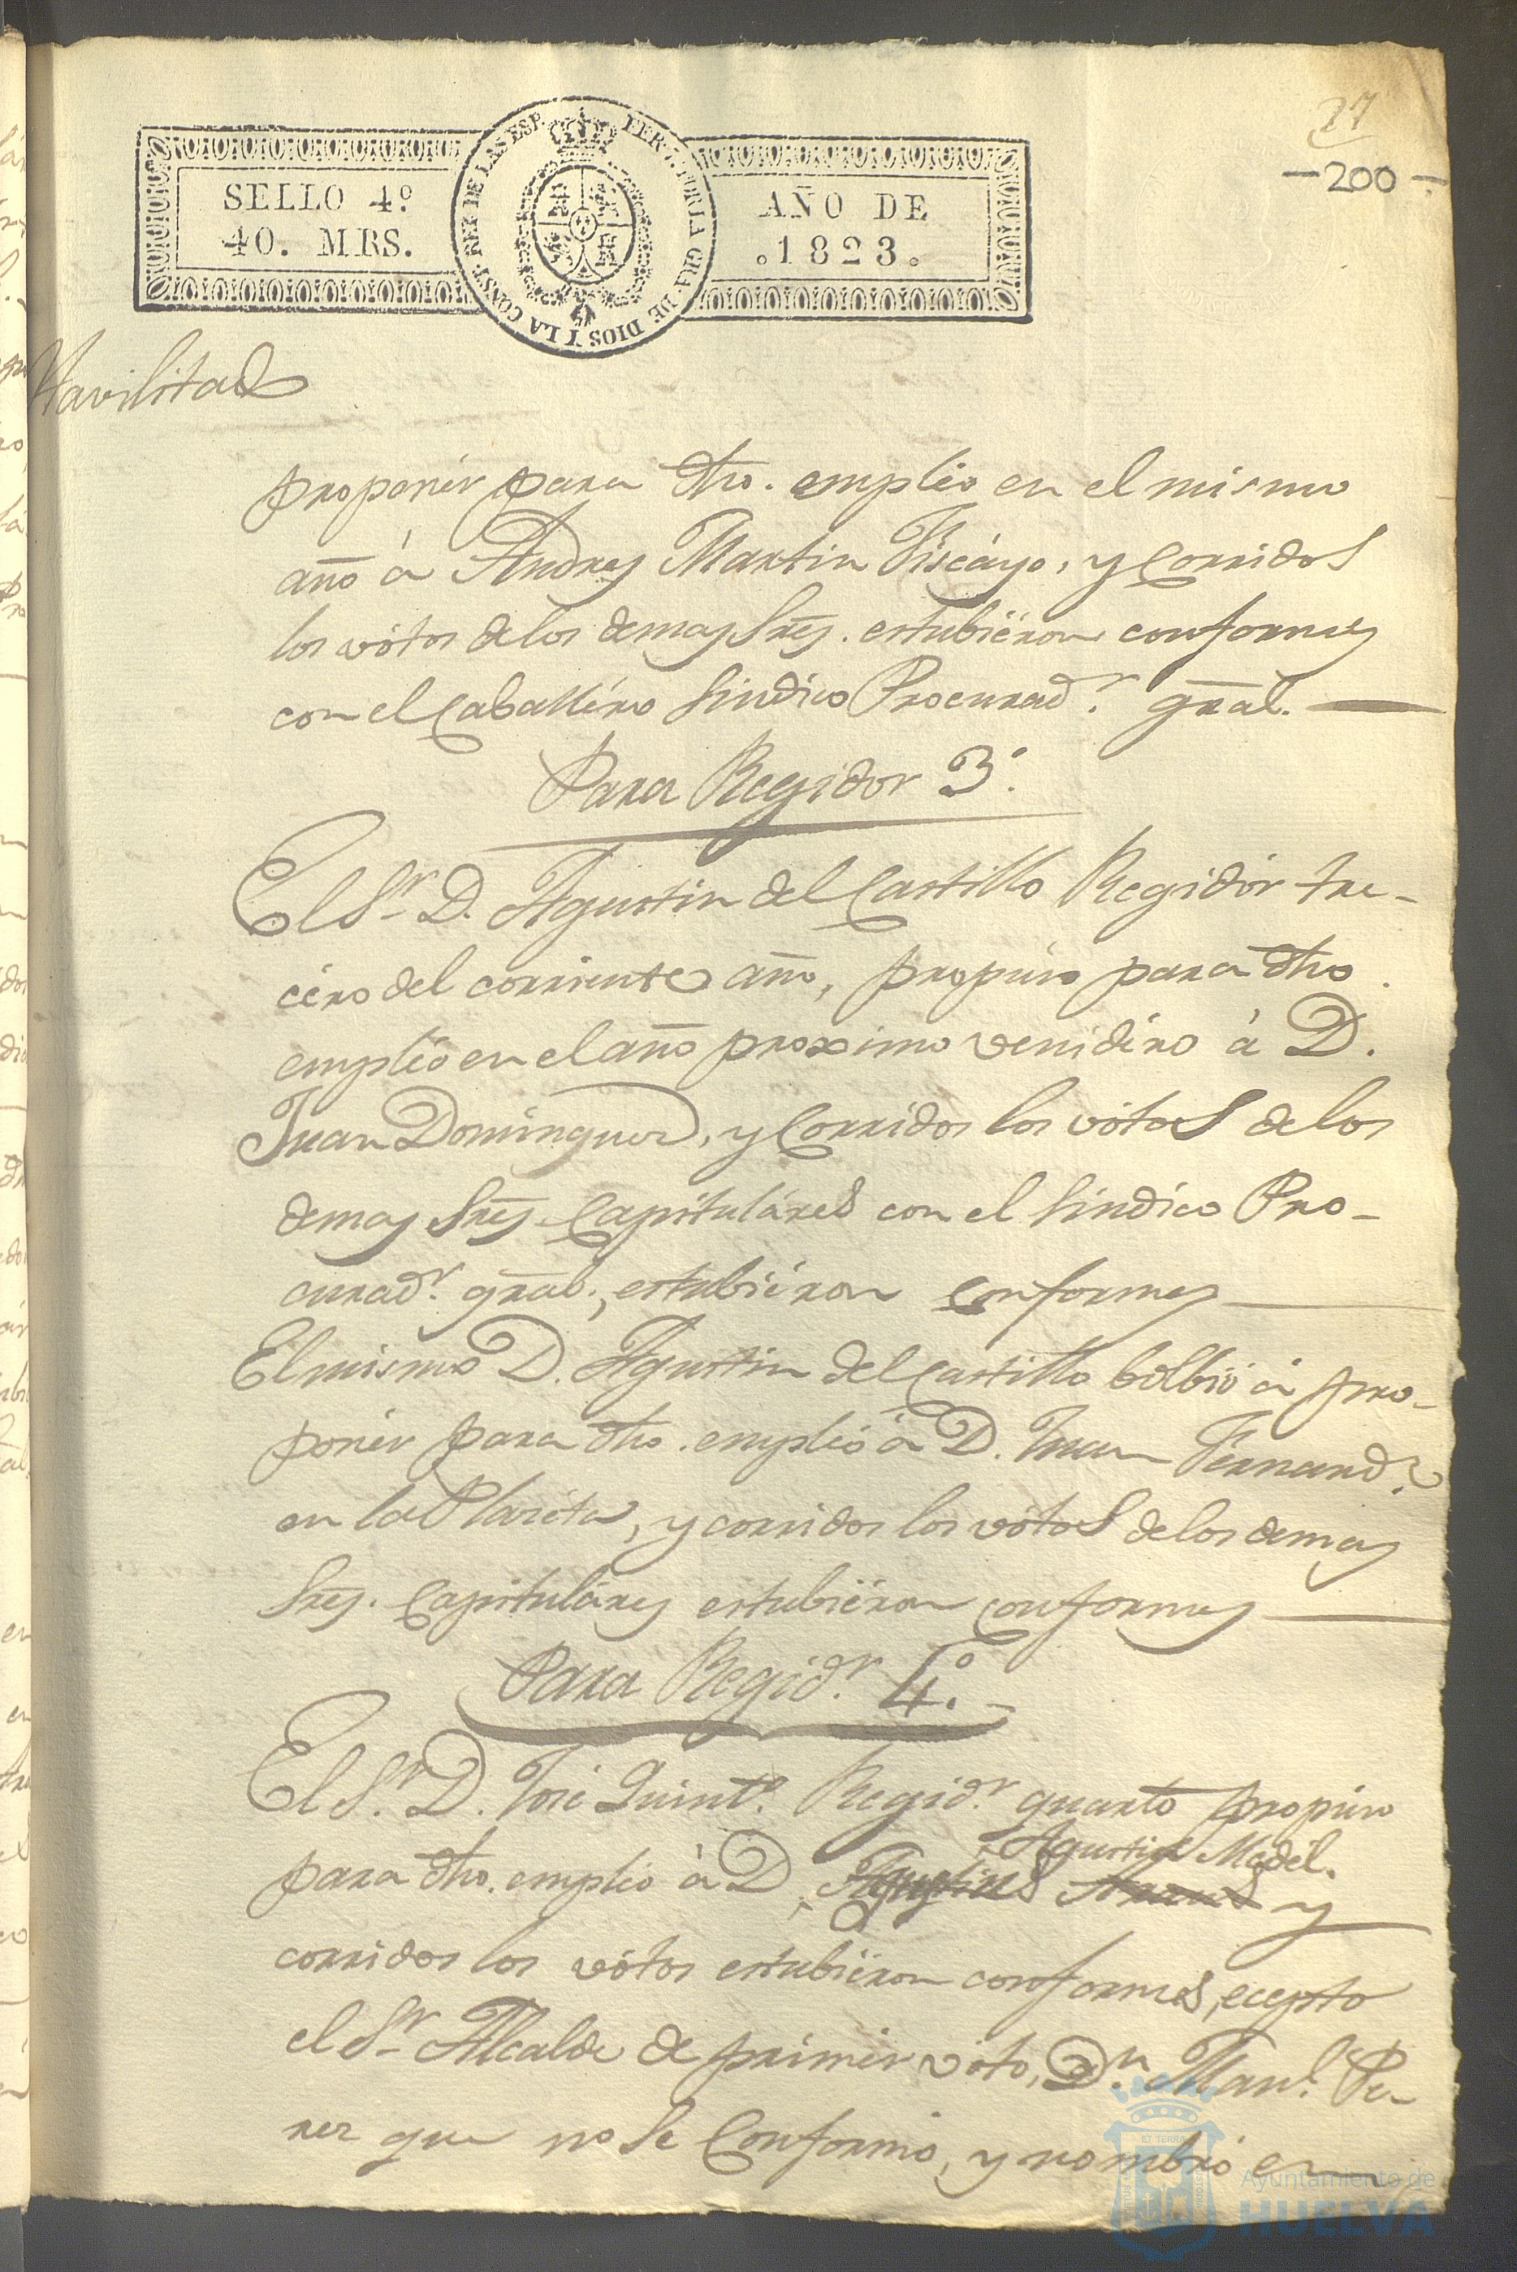 27
-200-
SELLO 4º
40. MRS.
FERN. 7. POR LA GRA. DE DIOS Y LA CONST. REY DE LAS ESP.
AÑO DE
.1823.
Havilitado
proponér para dho. empléo en el mismo
año á Andres Martin Viscáyo, y Corridos
los vótos de los demas Sres. estubiéron conformes
con el Caballéro Sindico Procurad.r gral.
Para Regidor 3.º
El S.r D. Agustin del Castillo Regidór tre-
céro del corriente año, propúso para dho
empléo en el año proximo venidéro á D.
Juan Dominguez, y Corridos los vótos de los
demas Sres. Capituláres con el Sindico Pro-
curad.r gral., estubiéron conformes
El mismo D. Agustin del Castillo bolbió á pro-
ponér para dho. empléo á D. Juan Fernand.z
en la Placéta, y corridos los vótos de los demas
Sres. Capituláres estubiéron conformes
Para Regid.r 4.º
El S.r D. José Quint.º Regid.r quarto propúso
Agustin Madél.
para dho. empléo á D. y
corridos los vótos estubiéron conformes, ecepto
el S.r Alcalde de primér vóto, D.n Man.l Pe-
rez que no se Conformó, y nombró en
Ayuntamiento de
HUELVA